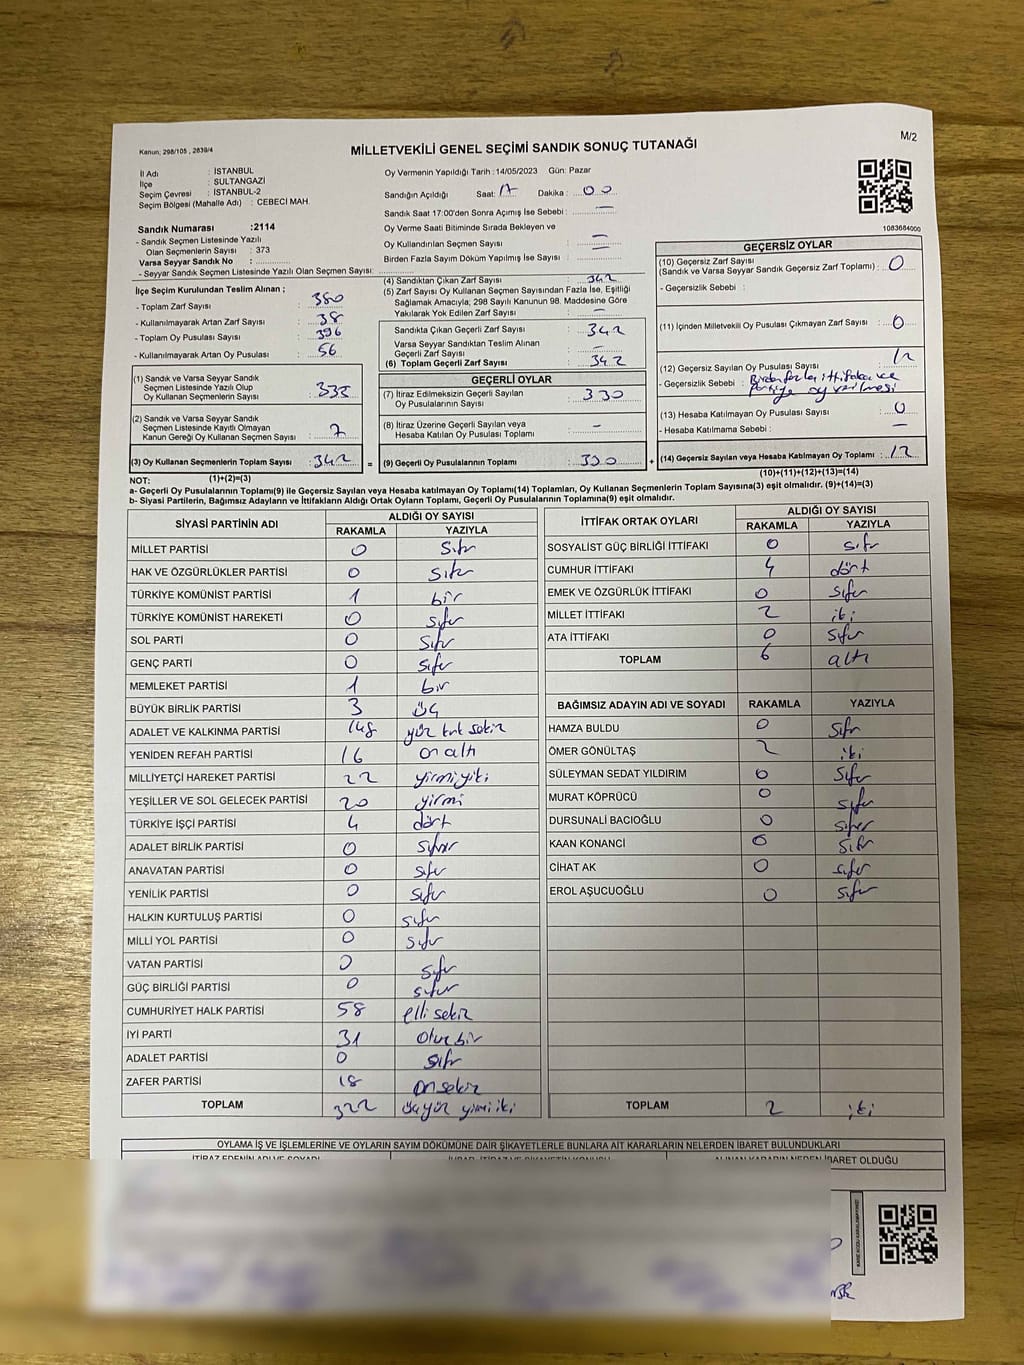 Kanun; 298/105 , 2839/4
M/2
MİLLETVEKİLİ GENEL SEÇİMİ SANDIK SONUÇ TUTANAĞI
İl Adı : İSTANBUL
İlçe : SULTANGAZİ
Seçim Çevresi : İSTANBUL-2
Seçim Bölgesi (Mahalle Adı) : CEBECİ MAH.
Sandık Numarası :2114
- Sandık Seçmen Listesinde Yazılı
Olan Seçmenlerin Sayısı : 373
Varsa Seyyar Sandık No :
- Seyyar Sandık Seçmen Listesinde Yazılı Olan Seçmen Sayısı:
Oy Vermenin Yapıldığı Tarih : 14/05/2023 Gün: Pazar
Sandığın Açıldığı Saat: 17 Dakika : 00
Sandık Saat 17:00'den Sonra Açımış İse Sebebi : —
Oy Verme Saati Bitiminde Sırada Bekleyen ve
Oy Kullandırılan Seçmen Sayısı : —
Birden Fazla Sayım Döküm Yapılmış İse Sayısı : —
1083684000
İlçe Seçim Kurulundan Teslim Alınan ;
- Toplam Zarf Sayısı : 380
- Kullanılmayarak Artan Zarf Sayısı : 38
- Toplam Oy Pusulası Sayısı : 396
- Kullanılmayarak Artan Oy Pusulası : 56
(1) Sandık ve Varsa Seyyar Sandık
Seçmen Listesinde Yazılı Olup
Oy Kullanan Seçmenlerin Sayısı : 335
(2) Sandık ve Varsa Seyyar Sandık
Seçmen Listesinde Kayıtlı Olmayan
Kanun Gereği Oy Kullanan Seçmen Sayısı : 7
(3) Oy Kullanan Seçmenlerin Toplam Sayısı : 342 =
(4) Sandıktan Çıkan Zarf Sayısı : 342
(5) Zarf Sayısı Oy Kullanan Seçmen Sayısından Fazla İse, Eşitliği
Sağlamak Amacıyla; 298 Sayılı Kanunun 98. Maddesine Göre
Yakılarak Yok Edilen Zarf Sayısı : —
Sandıkta Çıkan Geçerli Zarf Sayısı : 342
Varsa Seyyar Sandıktan Teslim Alınan
Geçerli Zarf Sayısı : —
(6) Toplam Geçerli Zarf Sayısı : 342
GEÇERLİ OYLAR
(7) İtiraz Edilmeksizin Geçerli Sayılan
Oy Pusulalarının Sayısı : 330
(8) İtiraz Üzerine Geçerli Sayılan veya
Hesaba Katılan Oy Pusulası Toplamı : -
(9) Geçerli Oy Pusulalarının Toplamı : 330 +
GEÇERSİZ OYLAR
(10) Geçersiz Zarf Sayısı
(Sandık ve Varsa Seyyar Sandık Geçersiz Zarf Toplamı) : 0
- Geçersizlik Sebebi :
(11) İçinden Milletvekili Oy Pusulası Çıkmayan Zarf Sayısı : 0
(12) Geçersiz Sayılan Oy Pusulası Sayısı : 12
- Geçersizlik Sebebi : Birden fazla ittifaka ve
partiye oy verilmesi
(13) Hesaba Katılmayan Oy Pusulası Sayısı : 0
- Hesaba Katılmama Sebebi : —
(14) Geçersiz Sayılan veya Hesaba Katılmayan Oy Toplamı : 12
NOT: (1)+(2)=(3)
(10)+(11)+(12)+(13)=(14)
a- Geçerli Oy Pusulalarının Toplamı(9) ile Geçersiz Sayılan veya Hesaba katılmayan Oy Toplamı(14) Toplamları, Oy Kullanan Seçmenlerin Toplam Sayısına(3) eşit olmalıdır. (9)+(14)=(3)
b- Siyasi Partilerin, Bağımsız Adayların ve İttifakların Aldığı Ortak Oyların Toplamı, Geçerli Oy Pusulalarının Toplamına(9) eşit olmalıdır.
SİYASİ PARTİNİN ADI
ALDIĞI OY SAYISI
RAKAMLA YAZIYLA
MİLLET PARTİSİ 0 sıfır
HAK VE ÖZGÜRLÜKLER PARTİSİ 0 sıfır
TÜRKİYE KOMÜNİST PARTİSİ 1 bir
TÜRKİYE KOMÜNİST HAREKETİ 0 sıfır
SOL PARTİ 0 sıfır
GENÇ PARTİ 0 sıfır
MEMLEKET PARTİSİ 1 bir
BÜYÜK BİRLİK PARTİSİ 3 üç
ADALET VE KALKINMA PARTİSİ 148 yüz kırk sekiz
YENİDEN REFAH PARTİSİ 16 on altı
MİLLİYETÇİ HAREKET PARTİSİ 22 yirmiyiki
YEŞİLLER VE SOL GELECEK PARTİSİ 20 yirmi
TÜRKİYE İŞÇİ PARTİSİ 4 dört
ADALET BİRLİK PARTİSİ 0 sıfır
ANAVATAN PARTİSİ 0 sıfır
YENİLİK PARTİSİ 0 sıfır
HALKIN KURTULUŞ PARTİSİ 0 sıfır
MİLLİ YOL PARTİSİ 0 sıfır
VATAN PARTİSİ 0 sıfır
GÜÇ BİRLİĞİ PARTİSİ 0 sıfır
CUMHURİYET HALK PARTİSİ 58 elli sekiz
İYİ PARTİ 31 otuz bir
ADALET PARTİSİ 0 sıfır
ZAFER PARTİSİ 18 on sekiz
TOPLAM 322 üçyüz yirmi iki
İTTİFAK ORTAK OYLARI
ALDIĞI OY SAYISI
RAKAMLA YAZIYLA
SOSYALİST GÜÇ BİRLİĞİ İTTİFAKI 0 sıfır
CUMHUR İTTİFAKI 4 dört
EMEK VE ÖZGÜRLÜK İTTİFAKI 0 sıfır
MİLLET İTTİFAKI 2 iki
ATA İTTİFAKI 0 sıfır
TOPLAM 6 altı
BAĞIMSIZ ADAYIN ADI VE SOYADI RAKAMLA YAZIYLA
HAMZA BULDU 0 sıfır
ÖMER GÖNÜLTAŞ 2 iki
SÜLEYMAN SEDAT YILDIRIM 0 sıfır
MURAT KÖPRÜCÜ 0 sıfır
DURSUNALİ BACIOĞLU 0 sıfır
KAAN KONANCİ 0 sıfır
CİHAT AK 0 sıfır
EROL AŞUCUOĞLU 0 sıfır
TOPLAM 2 iki
OYLAMA İŞ VE İŞLEMLERİNE VE OYLARIN SAYIM DÖKÜMÜNE DAİR ŞİKAYETLERLE BUNLARA AİT KARARLARIN NELERDEN İBARET BULUNDUKLARI
İTİRAZ EDENİN ADI VE SOYADI
ALINAN KARARIN NEDEN İBARET OLDUĞU